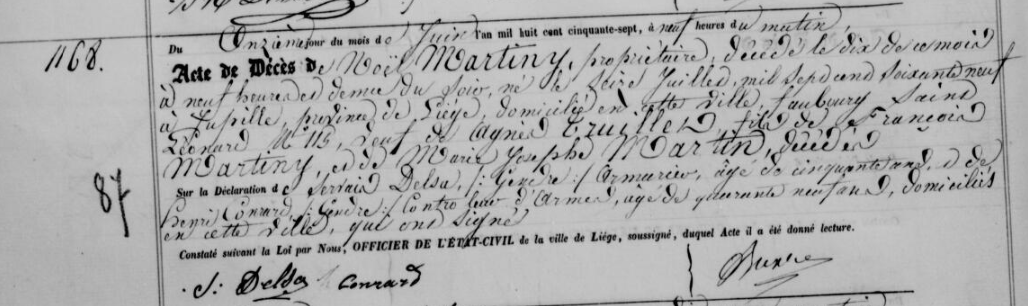 1168.
Du Onzième jour du mois de Juin l'an mil huit cent cinquante-sept, à neuf heures du matin
Acte de Décès de Noël Martiny, propriétaire, décédé le dix de ce mois
à neuf heures et demie du soir, né le seize Juillet, mil sept cent soixante neuf
à Jupille, province de Liége, domicilié en cette ville, faubourg Saint
Léonard N° 115, veuf de Agnes Truillet, fils de François
Martiny, et de Marie Josephe Martin, décédés
87
Sur la Déclaration de Servais Delsa, /: Gendre :/ Armurier, âgé de cinquante ans, et de
Henri Conrard, /: Gendre :/ Controleur d'Armes, âgé de quarante neuf ans, domiciliés
en cette ville, qui ont signé
Constaté suivant la Loi par Nous, OFFICIER DE L'ÉTAT-CIVIL de la ville de Liége, soussigné, duquel Acte il a été donné lecture.
S. Delsa Conrard